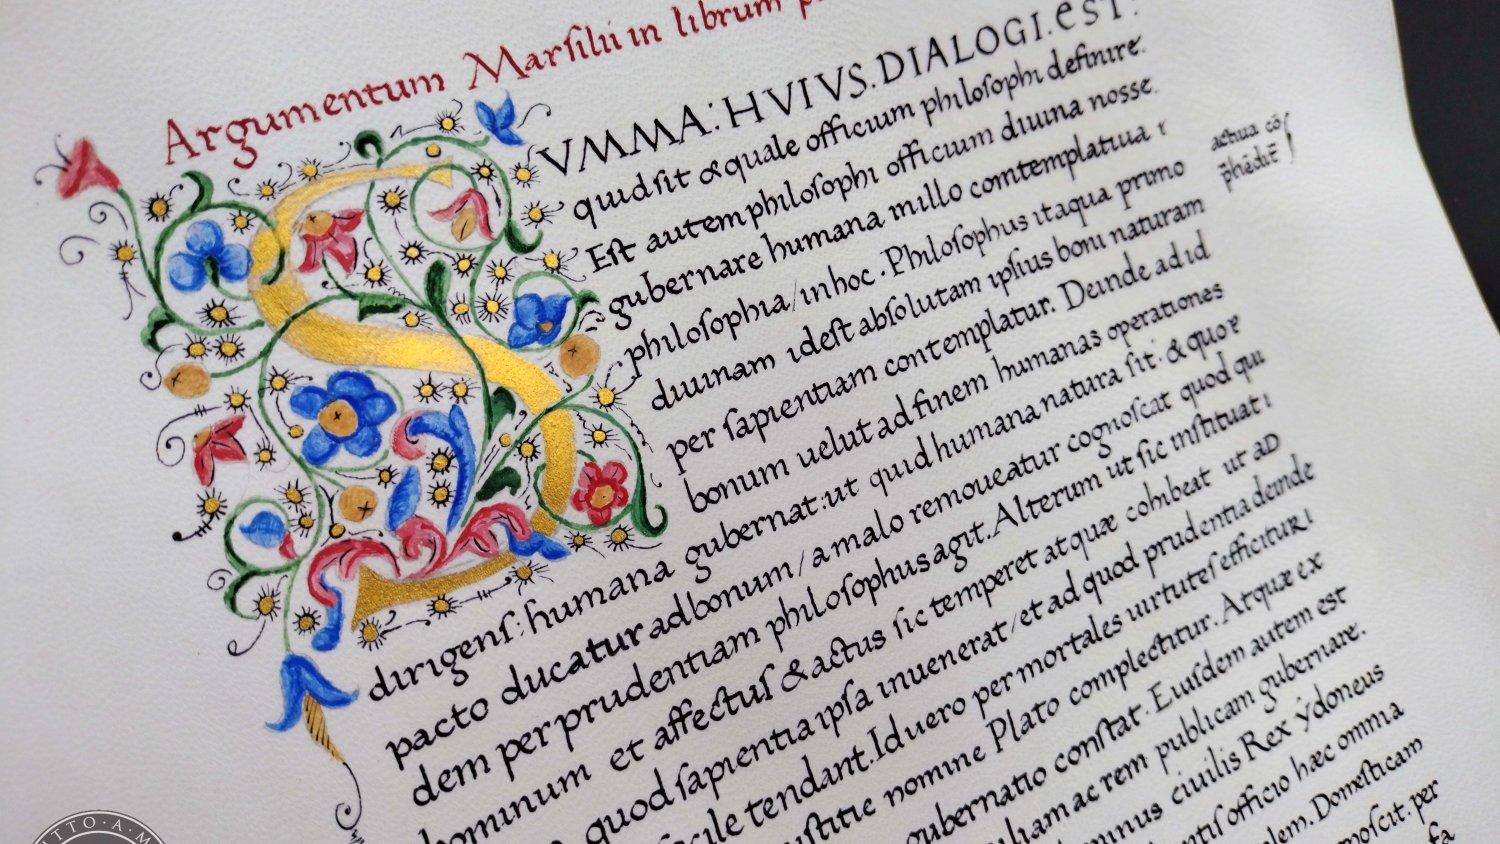 Argumentum Marſilii in librum
SVMMA: HVIVS. DIALOGI. eST:
quid ſit & quale officium philoſophi definire.
Eſt autem philoſophi officium diuina nosse.
gubernare humana. nullo contemplatiua ı
actiua cō
philoſophia / in hoc. Philoſophus itaqua primo
diuinam ideſt abſolutam ipſius boni naturam
per ſapientiam contemplatur. Deinde ad id
bonum uelut ad finem humanas operationes
gubernat: ut quid humana natura ſit: & quo
dirigenſ: humana remoueatur cognoſcat quod qui
pacto ducatur ad bonum / a malo Alterum ut ſic inſtituat
dem per prudentiam philoſophus agit. cohibeat ut aD
hominum et affectuſ & actus ſic temperet atquæ prudentia deinde
quod ſapientia ipſa inuenerat / et ad quod uirtuteſ efficiturı
facile tendant. Id uero per mortales Atquæ ex
iuſtitie nomine Plato complectitur. Eiuſdem autem est
gubernatio conſtat. publicam gubernare.
ac rem ciuilis Rex ẏdoneus
officio hæc omnia
Domeſticam
per
fa
TTO · A · M